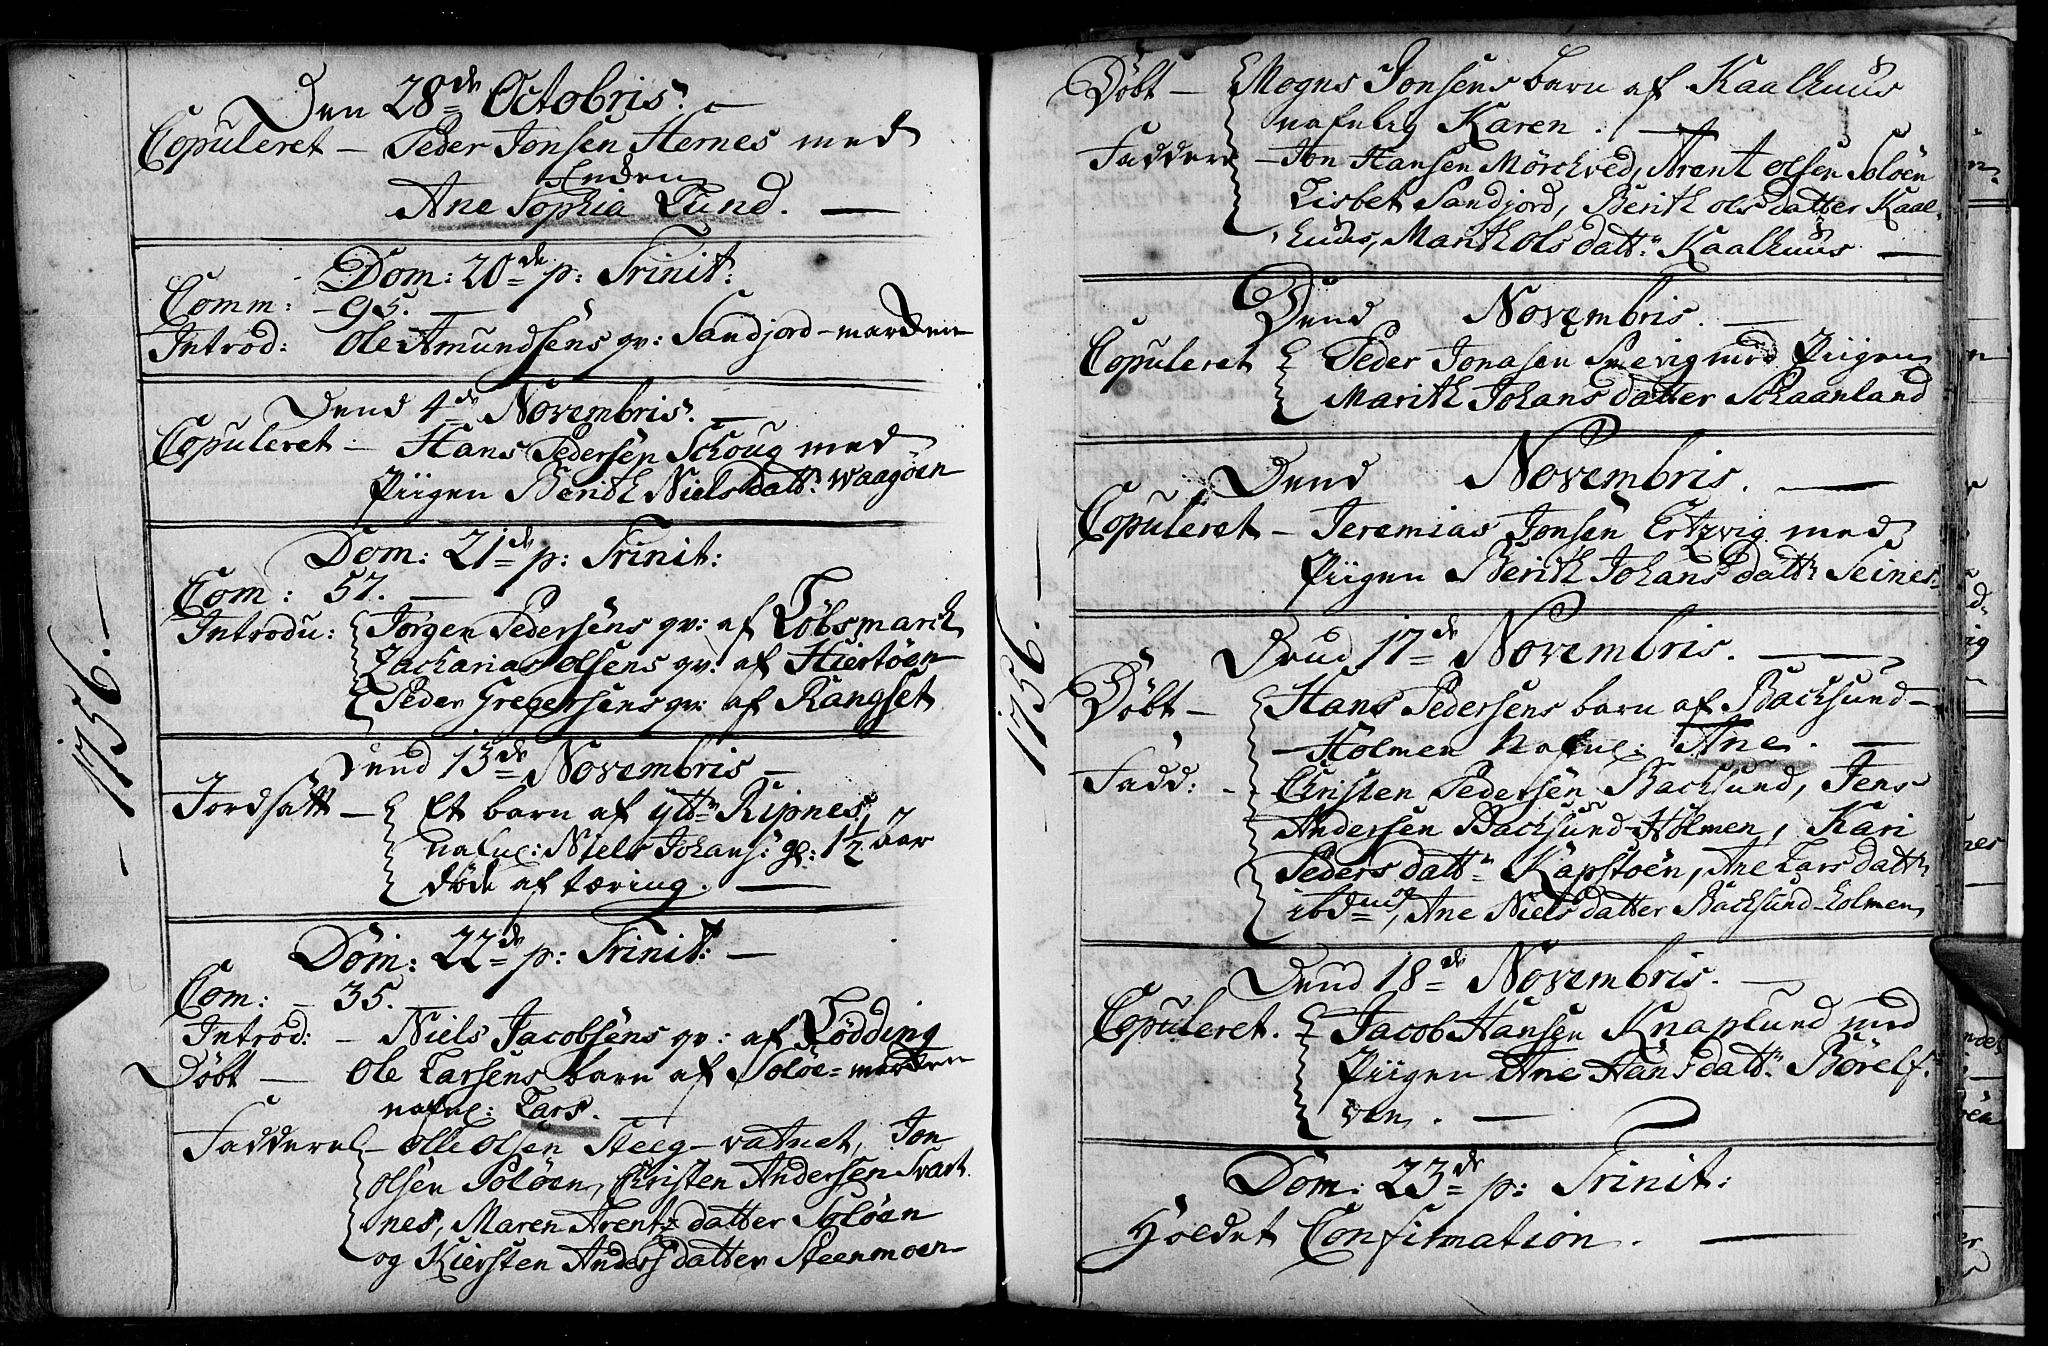 1756.
Den 28de Octobris.
Copuleret – Peder Jonsen Hernes med
Enden
Ane Sophia Lund.
Dom: 20de p: Trinit:
Comm: – 95.
Introd: Ole Amundsens qv: Sandjord-marchen
Dend 4de Novembris.
Copuleret – Hans Pedersen Schoug med
Piigen Berith Niels datt: Waagöen
Dom: 21de p: Trinit:
Com: 57.
Introdu: Jörgen Pedersens qv: af Löbsmarck
Zacharias Olsens qv: af Hiertöen
Peder Gregersens qv: af Rangset
Dend 13de Novembris
Jordsatt – Et barn af ytt: Ripnes,
nafnl: Niels Johans: gl: 1½ aar
döde af tæring.
Dom: 22de p: Trinit:
Com: – 35.
Introd: – Niels Jacobsens qv: af Lödding
Döbt – Ole Larsens barn af Solöe-marken
nafnl: Lars.
Faddere – Olle Olsen Steeg-vatnet, Jon
Olsen Solöen, Christen Andersen Svart
nes, Maren Arentz datter Solöen
og Kiersten Anders datter Steenmoen
1756.
Döbt – Mogns Jonsens barn af Kaalhuus
nafnlig Karen.
Faddere – Jon Hansen Mörchved, Arent Olsen Solöen
Lisbet Sandjord, Berith Ols datter Kaal-
huus, Marith Ols datt: Kaalhuus
Dend Novembris.
Copuleret Peder Jonasen Snevig med Piigen
Marith Johans datter Schaanland
Dend Novembris.
Copuleret – Jeremias Jonsen Ertzvig med
Piigen Berith Johans datt: Seines
Dend 17de Novembris.
Döbt – Hans Pedersens barn af Backsund-
Holmen nafnl: Ane.
Fadd: – Christen Pedersen Backsund, Jens
Andersen Backsund-Holmen, Kari
Peders datt: Kapstöen, Ane Lars datt:
ibd: og, Ane Niels datter Backsund-holmen
Dend 18de Novembris.
Copuleret. Jacob Hansen Knaplund med
Piigen Ane Hans datt: Börelf-
ven.
Dom: 23de p: Trinit:
Holdet Confirmation.